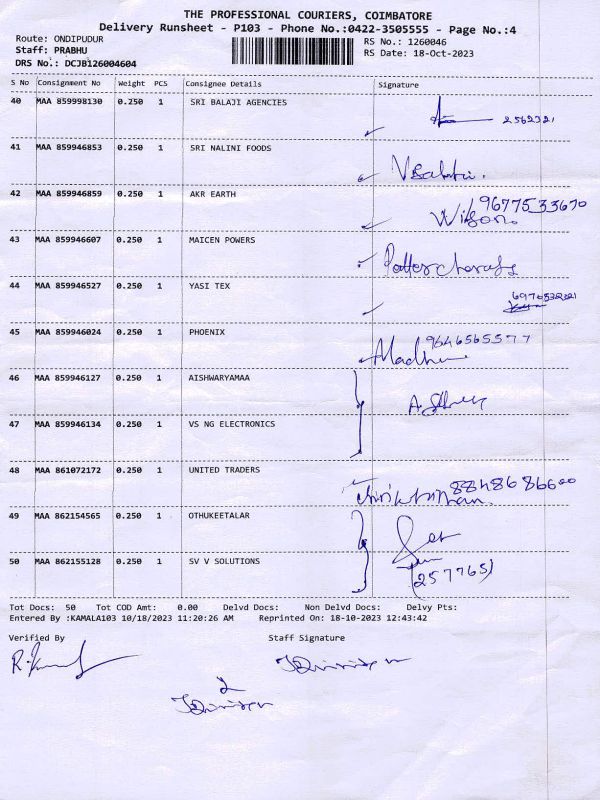 THE PROFESSIONAL COURIERS, COIMBATORE
Delivery Runsheet - P103 - Phone No.:0422-3505555 - Page No.:4
Route: ONDIPUDUR
RS No.: 1260046
Staff: PRABHU
RS Date: 18-Oct-2023
DRS No.: DCJB126004604
S No Consignment No Weight PCS Consignee Details Signature
40 MAA 859998130 0.250 1 SRI BALAJI AGENCIES 2562321
41 MAA 859946853 0.250 1 SRI NALINI FOODS
42 MAA 859946859 0.250 1 AKR EARTH 9677533670
Wilson.
43 MAA 859946607 0.250 1 MAICEN POWERS
44 MAA 859946527 0.250 1 YASI TEX
45 MAA 859946024 0.250 1 PHOENIX 9646565577
46 MAA 859946127 0.250 1 AISHWARYAMAA
47 MAA 859946134 0.250 1 VS NG ELECTRONICS
48 MAA 861072172 0.250 1 UNITED TRADERS
49 MAA 862154565 0.250 1 OTHUKEETALAR
50 MAA 862155128 0.250 1 SV V SOLUTIONS
Tot Docs: 50 Tot COD Amt: 0.00 Delvd Docs: Non Delvd Docs: Delvy Pts:
Entered By :KAMALA103 10/18/2023 11:20:26 AM Reprinted On: 18-10-2023 12:43:42
Verified By Staff Signature